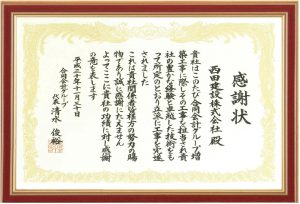 感謝状
西田建設株式会社 殿
貴社はこのたび合同会計グループ増
築工事に際しその工事を担当され貴
社の豊かな経験と卓越した技術をも
って所定のとおり立派に工事を完遂
されました
これは貴社関係者皆様方の努力の賜
物であり誠に感謝にたえません
よってここに貴社の功績に対し感謝
の意を表します
平成二十年十一月三十日
合同会計グループ
代表 清水 俊裕